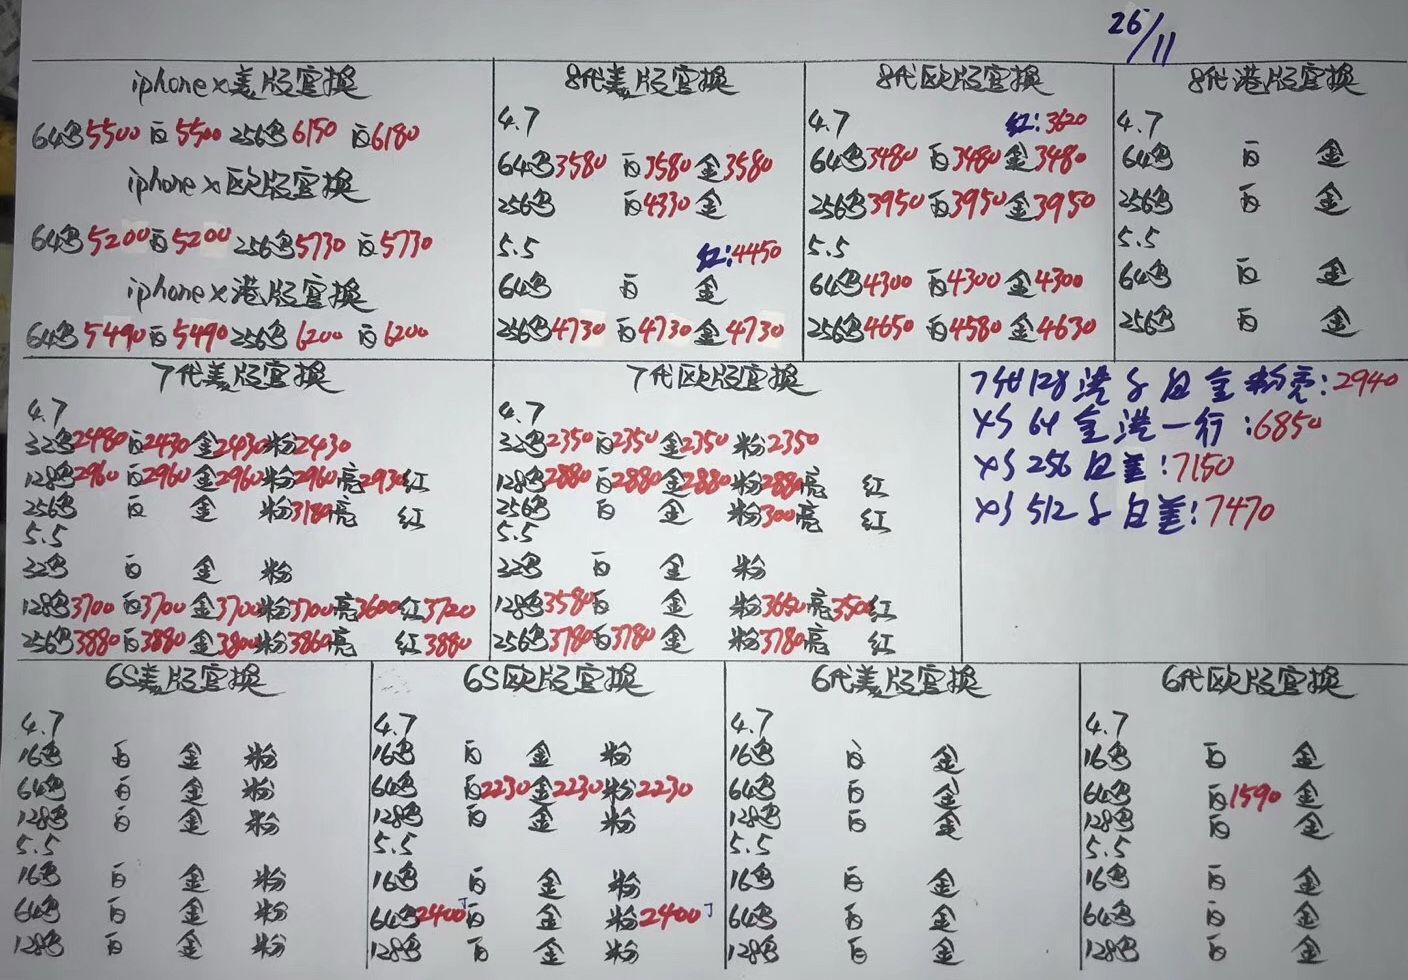 26/11
iphone x美版官换
64黑5500 白5500 256黑6150 白6180
iphone x欧版官换
64黑5200白5200 256黑5730 白5730
iphone x港版官换
64黑5490白5490 256黑6200 白6200
8代美版官换
4.7
64黑3580 白3580 金3580
256黑 白4330 金
5.5 红:4450
64黑 白 金
256黑4730 白4730 金4730
8代欧版官换
4.7 红:3620
64黑3480 白3480 金3480
256黑3950 白3950 金3950
5.5
64黑4300 白4300 金4300
256黑4650 白4580 金4630
8代港版官换
4.7
64黑 白 金
256黑 白 金
5.5
64黑 白 金
256黑 白 金
7代美版官换
4.7
32黑2480白2430金2430粉2430
128黑2960白2960金2960粉2960亮2930红
256黑 白 金 粉3180亮 红
5.5
32黑 白 金 粉
128黑3700白3700金3700粉3700亮3600红3720
256黑3880白3880金3800粉3860亮 红3880
7代欧版官换
4.7
32黑2350白2350金2350 粉2350
128黑2880白2880金2880粉2880亮 红
256黑 白 金 粉300亮 红
5.5
32黑 白 金 粉
128黑3580白 金 粉3650亮3500红
256黑3780白3780金 粉3780亮 红
7代128港 白金粉亮:2940
XS 64金港一行:6850
XS 256白美:7150
XS 512 白美:7470
6S美版官换
4.7
16黑 白 金 粉
64黑 白 金 粉
128黑 白 金 粉
5.5
16黑 白 金 粉
64黑 白 金 粉
128黑 白 金 粉
6S欧版官换
4.7
16黑 白 金 粉
64黑 白2230金2230粉2230
128黑 白 金 粉
5.5
16黑 白 金 粉
64黑2400白 金 粉2400
128黑 白 金 粉
6代美版官换
4.7
16黑 白 金
64黑 白 金
128黑 白 金
5.5
16黑 白 金
64黑 白 金
128黑 白 金
6代欧版官换
4.7
16黑 白 金
64黑 白1590 金
128黑 白 金
5.5
16黑 白 金
64黑 白 金
128黑 白 金